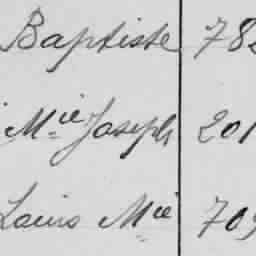 Baptiste 782
Mie Joseph 201
Louis Mie 709